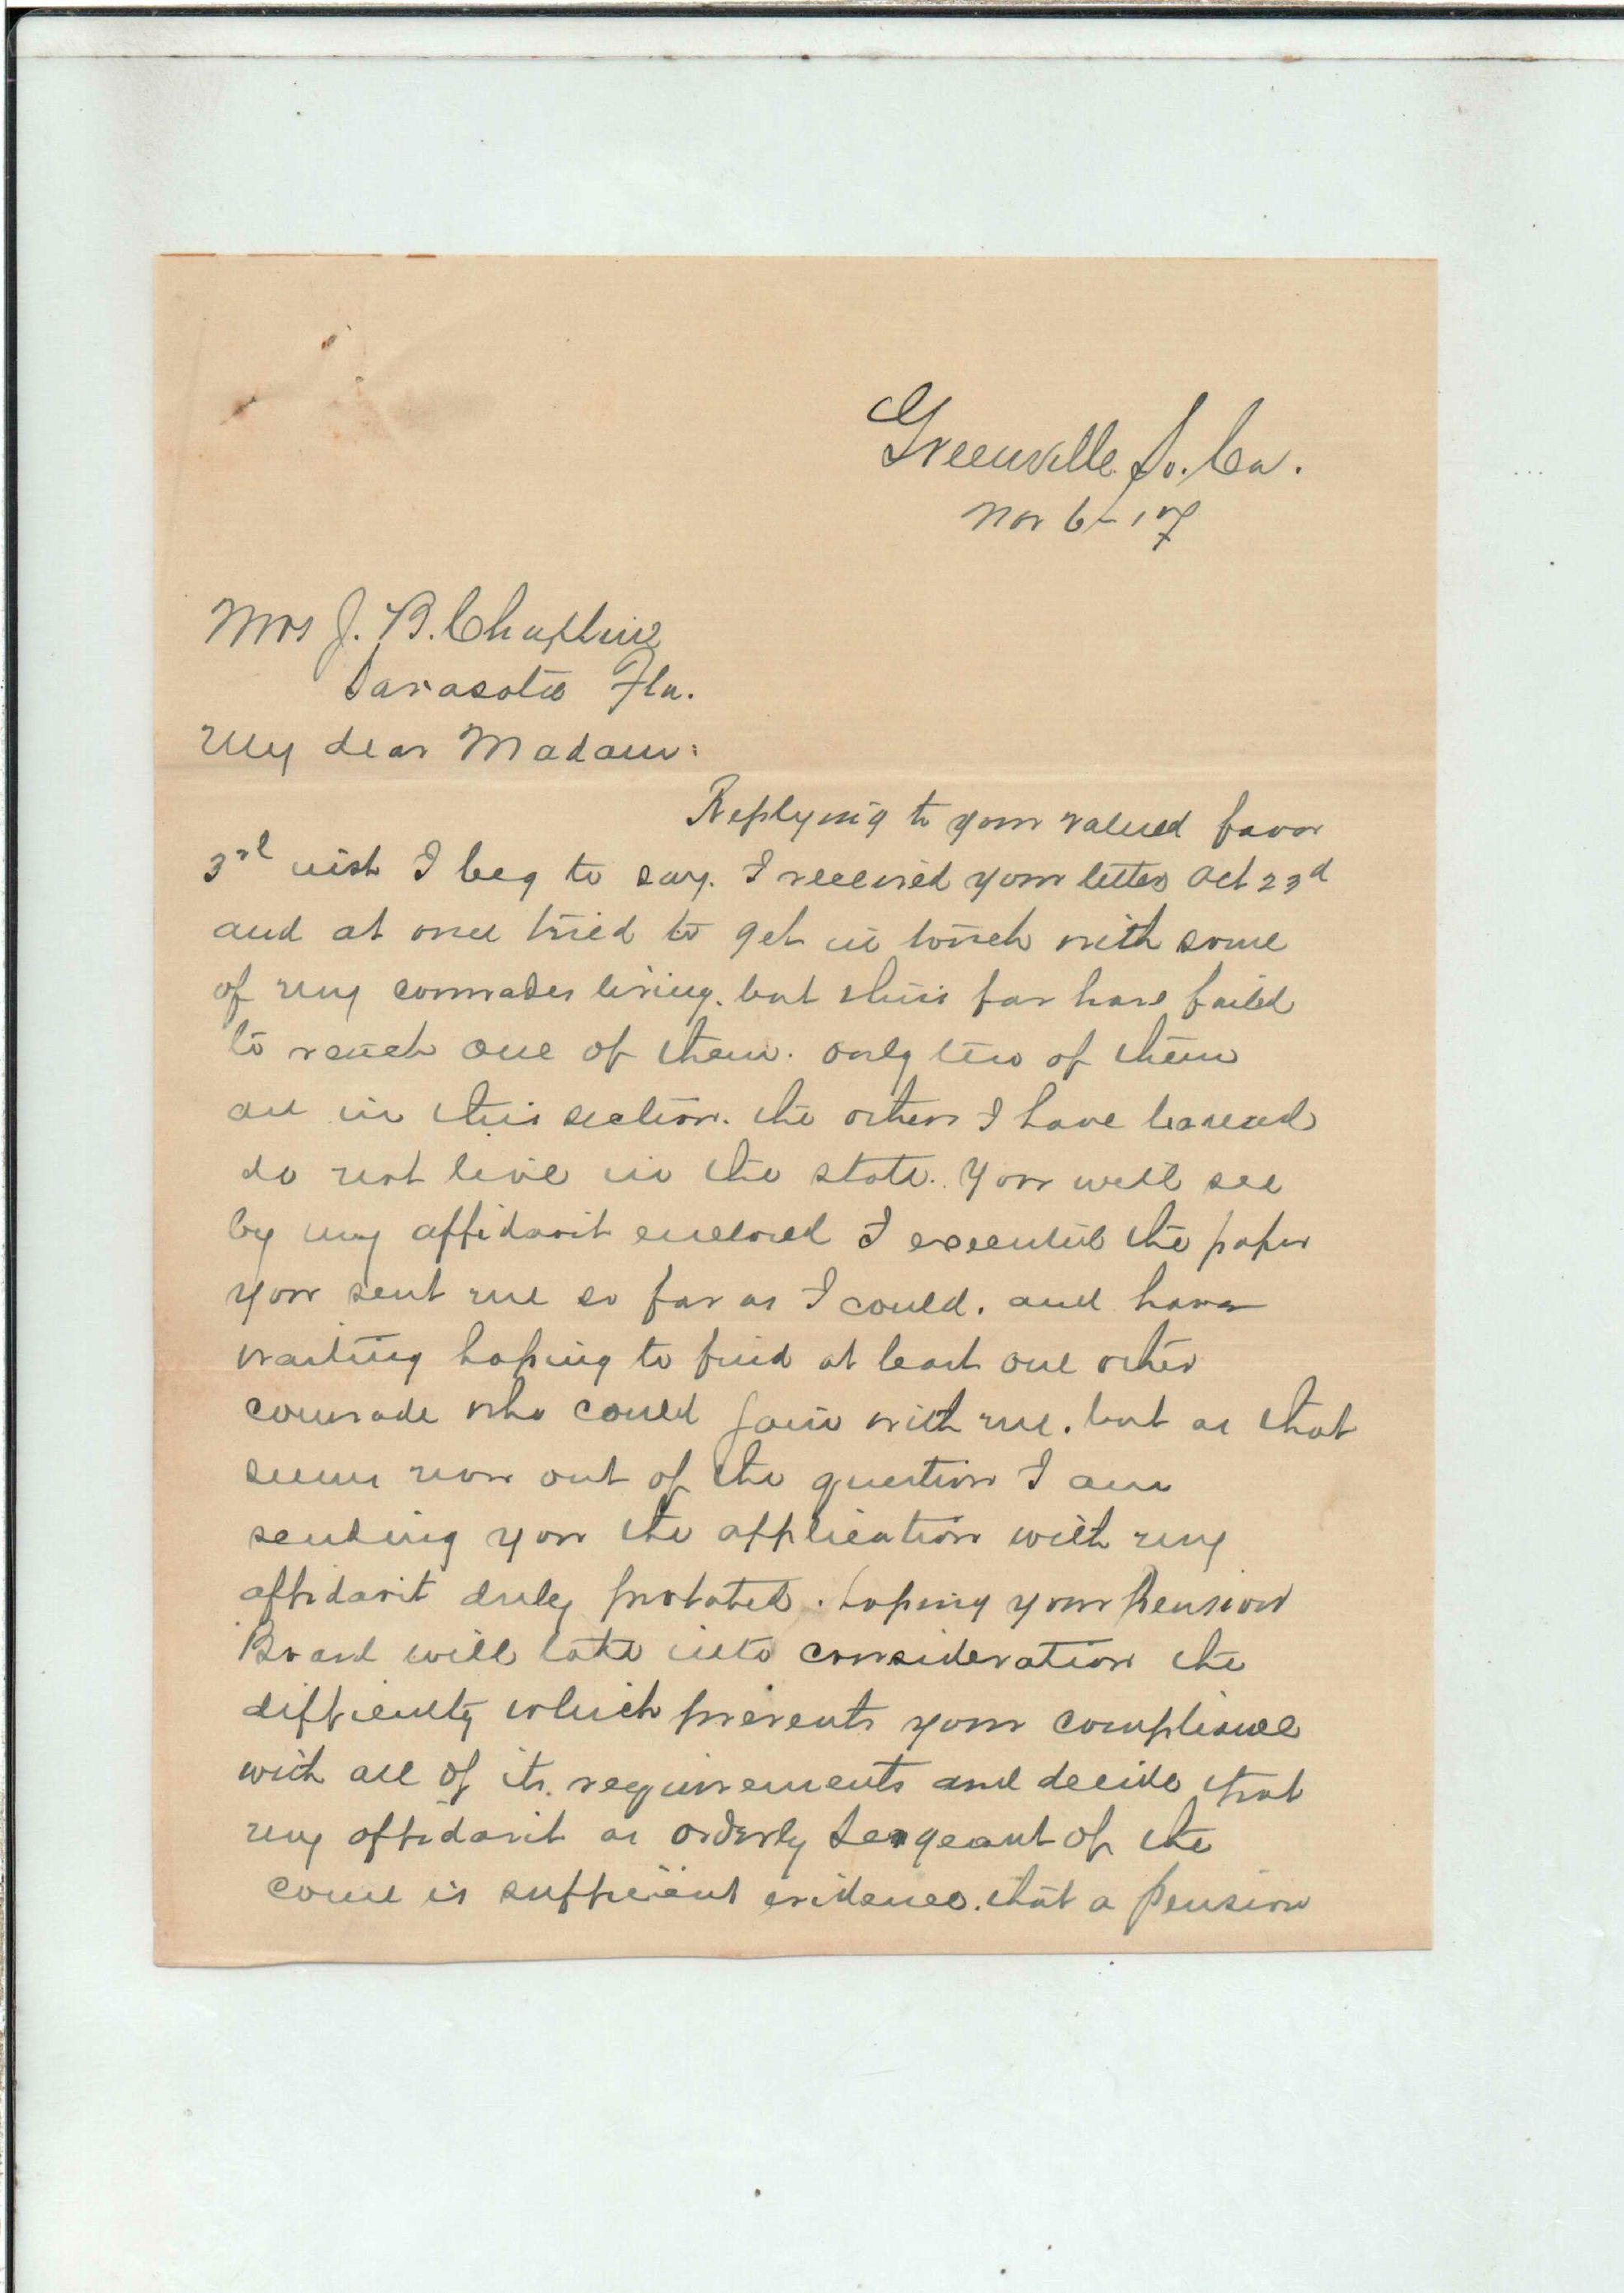 Greenville So. Ca.
Nov 6 - 17
Mrs J. B. Chaplin
Sarasota Fla.
My dear Madam:
Replying to your valued favor
3rd inst I beg to say. I received your letter Oct 23d
and at once tried to get in touch with some
of my comrades living. but thus far have failed
to reach one of them. only two of them
are in this section. the others I have learned
do not live in the state. You will see
by my affidavit enclosed I executed the paper
you sent me so far as I could. and have
waiting hoping to find at least one other
comrade who could join with me. but as that
seems now out of the question I am
sending you the application with my
affidavit duly probated. hoping your Pension
Board will take into consideration the
difficulty which prevents your compliance
with all of its requirements and decide that
my affidavit as orderly Sergeant of the
is sufficient evidence. that a pension